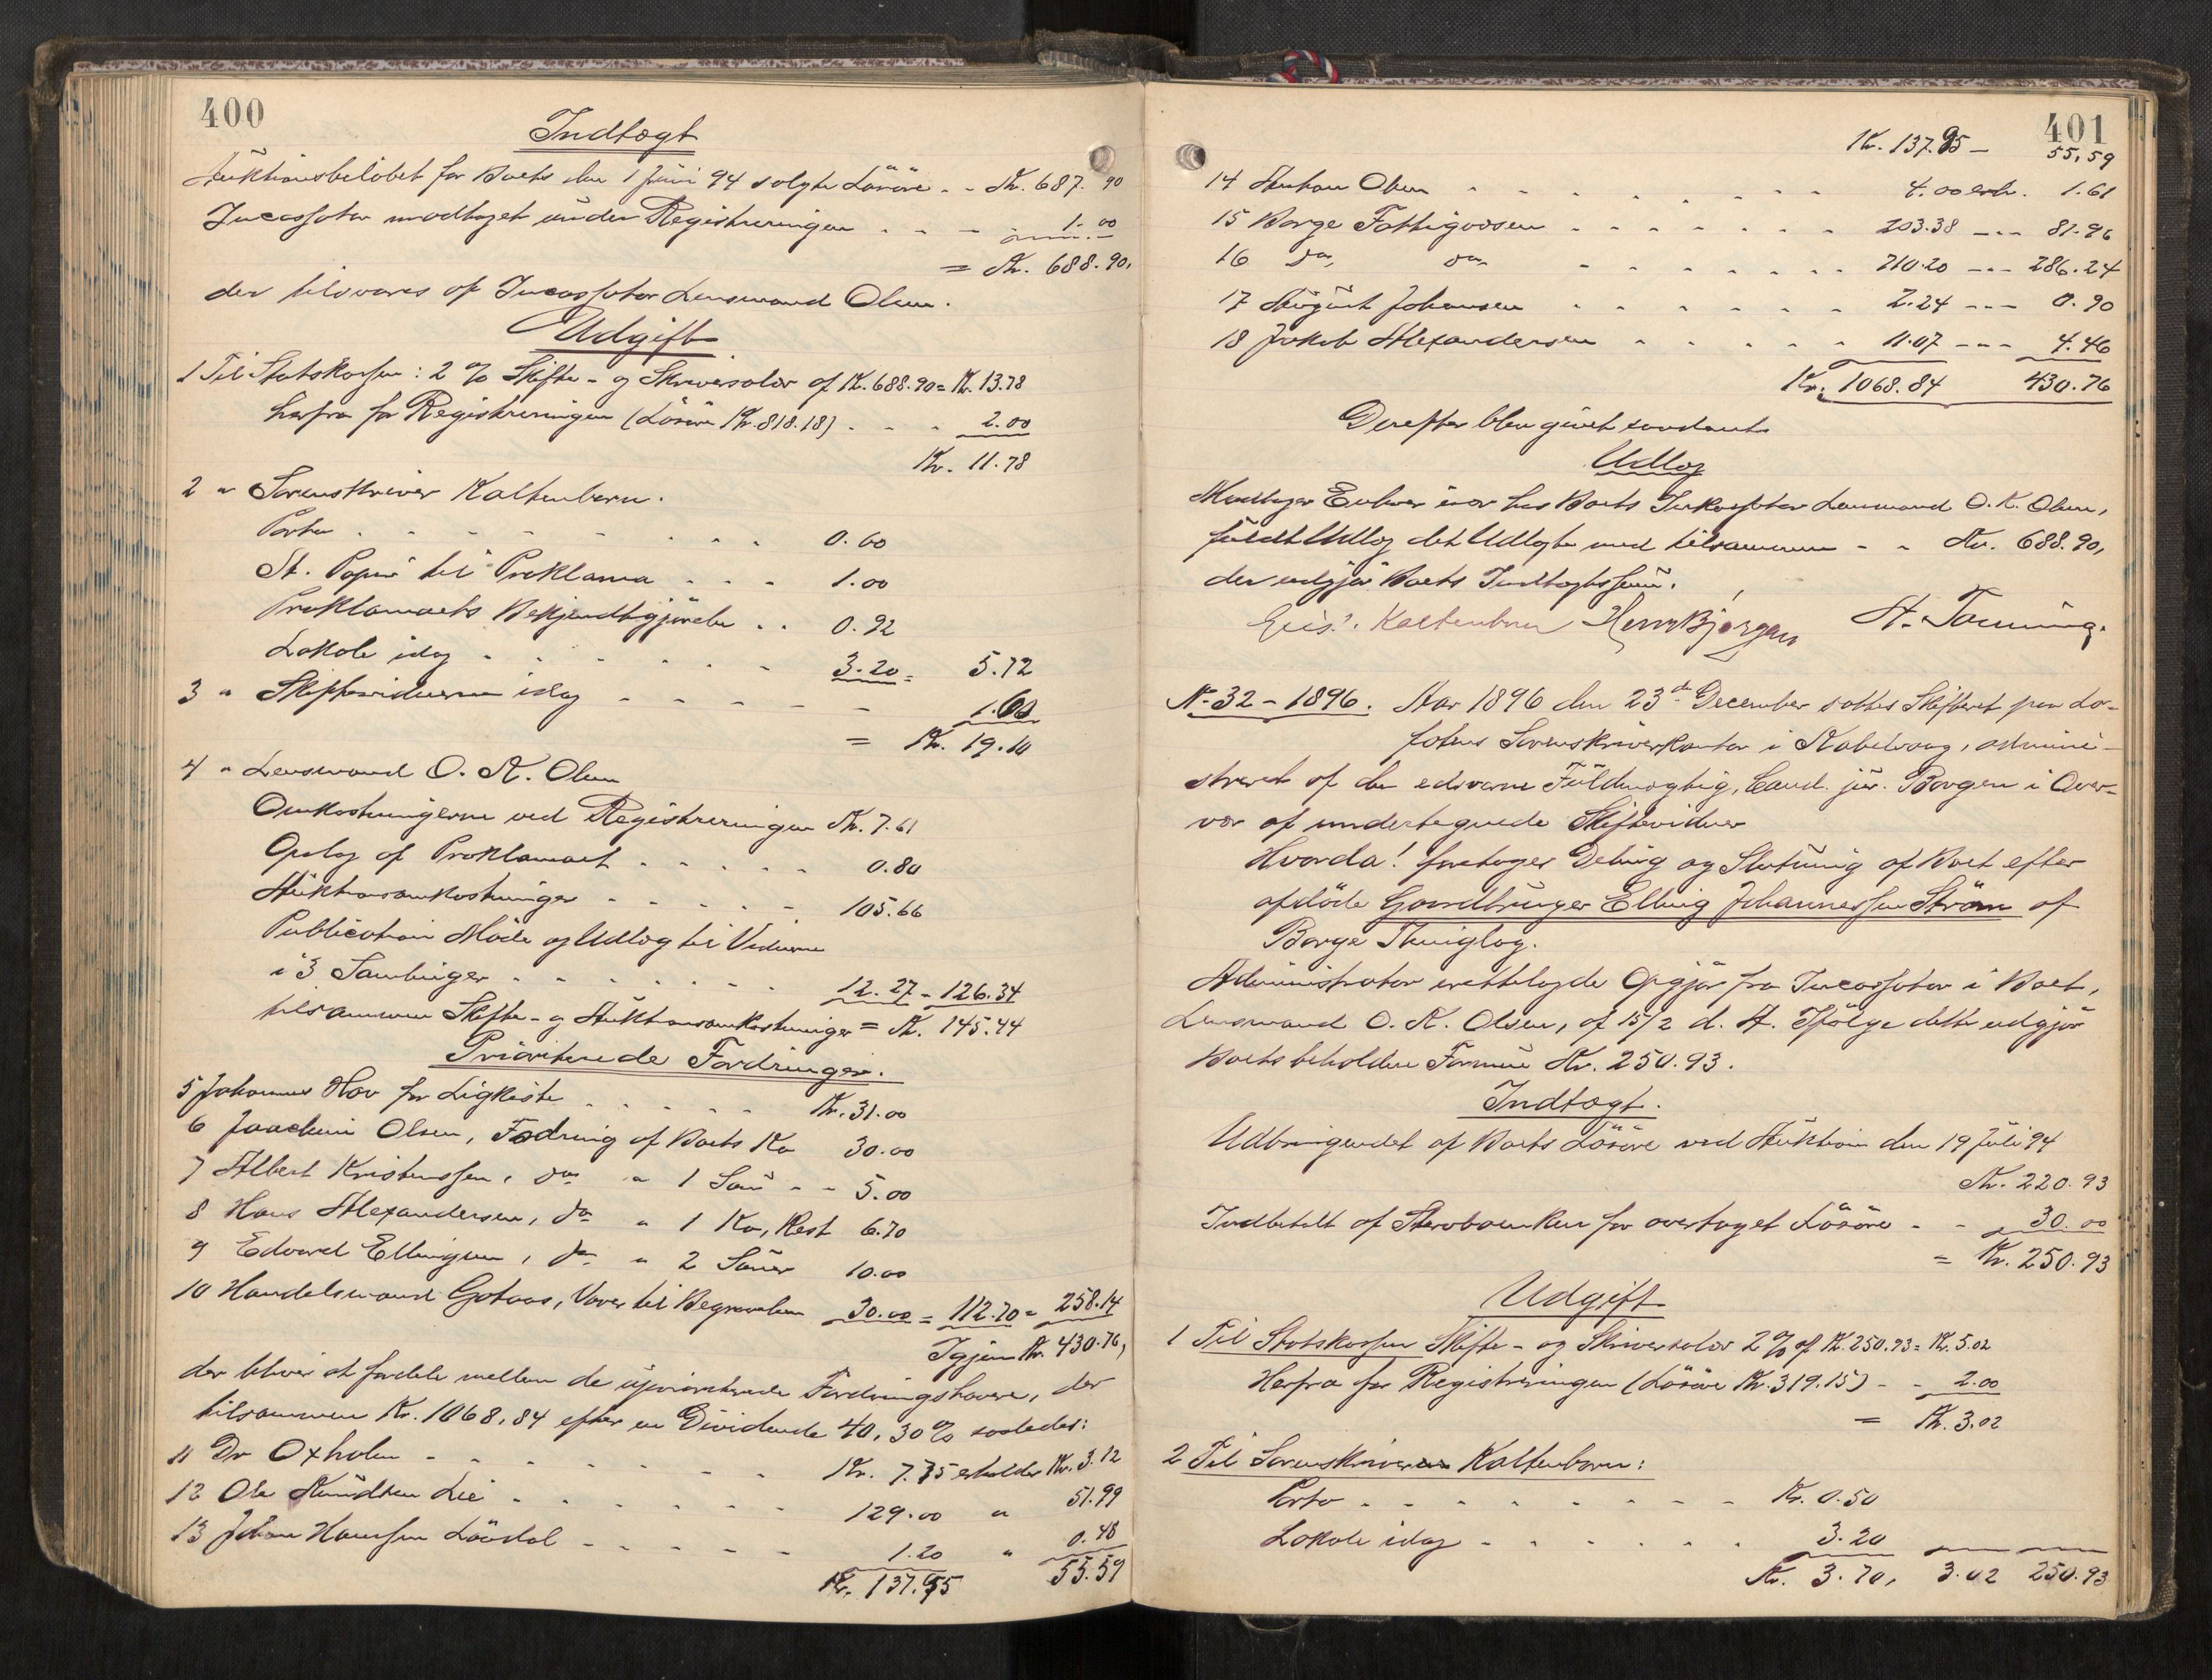 400
Indtægt
Auktionsbeløbet for Boets den 1 Juni 94 solgte Løsøre - - Kr. 687.90
Incassator modtaget under Registreringen - - - 1.00
= Kr. 688.90,
der tilsvares af Incassator Lensmand Olsen.
Udgift
1 Til Statskassen: 2 % Skifte- og Skriversalær af Kr. 688.90 = Kr. 13.78
herfra for Registreringen (Løsøre Kr. 818.18) - - - 2.00
Kr. 11.78
2 " Sorenskriver Kaltenborn.
Porto - - - - - - - - 0.60
St. Papir til Proklama - - - 1.00
Proklamaets Bekjendtgjørelse - - 0.92
Lokale idag - - - - - - 3.20 = 5.72
3 " Skiftevidnerne idag - - - - - 1.60
= Kr. 19.10
4 " Lensmand O. K. Olsen
Omkostningerne ved Registreringen Kr. 7.61
Opslag af Proklamaet - - - - - 0.80
Auktionsomkostninger - - - - - 105.66
Publication Møde og Udlæg til Vidnerne
i 3 Samlinger - - - - - - - 12.27 - 126.34
tilsammen Skifte- og Auktionsomkostninger = Kr. 145.44
Prioriterede Fordringer.
5 Johannes Hov for Ligkiste - - - - - Kr. 31.00
6 Joachim Olsen, Fodring af Boets Ko 30.00
7 Albert Kristenssen, do " 1 Sau - - 5.00
8 Hans Alexandersen, do " 1 Ko, Rest 6.70
9 Edvard Ellingsen, do " 2 Sauer 10.00
10 Handelsmand Gotaas, Varer til Begravelsen 30.00 = 112.70 = 258.14
Igjen Kr. 430.76,
der bliver at fordele mellem de uprioriterede Fordringshavere, der
tilsammen Kr. 1068,84 efter en Dividende 40,30 % saaledes:
11 Dr Oxholm - - - - - - - - Kr. 7.75 erholder Kr. 3.12
12 Ole Knudtsen Lie - - - - - - - 129.00 " 51.99
13 Johan Hanssen Løvdal - - - - - 1.20 " 0.48
Kr. 137.95 55.59
401
Kr. 137.95 - 55,59
14 Anton Olsen - - - - - - - 4.00 erh. 1.61
15 Borge Fattigvæsen - - - - - - - 203.38 --- 81.96
16 do do - - - - - - - 710.20 --- 286.24
17 August Johansen - - - - - - 2.24 --- 0.90
18 Jakob Alexandersen - - - - - 11.07 --- 4.46
Kr. 1068.84 430.76
Derefter blev givet saadant
Udlæg
Modtager Enhver især hos Boets Inkassator Lensmand O. K. Olsen,
fuldt Udlæg det Udlagte med tilsammen - - Kr. 688.90,
der udgjør Boets Indtægtssum.
Giis. Kaltenborn Herm Bjørgan A. Tønning.
No 32 - 1896. Aar 1896 den 23de December sattes Skifteret paa Lo-
fotens Sorenskriverkontor i Kabelvaag, admini-
streret af den edsvorne Fuldmægtig, Cand. jur. Borgen i Over-
vær af undertegnede Skiftevidner
Hvorda! foretoges Deling og Slutning af Boet efter
afdøde Gaardbruger Elling Johannessen Strøm af
Borge Thinglag.
Administrator irettelagde Opgjør fra Incassator i Boet,
Lensmand O. K. Olsen, af 15/2 d. A. Ifølge dette udgjør
Boets beholdne Formue Kr. 250.93.
Indtægt.
Udbringendet af Boets Løsøre ved Auktion den 19 Juli 94
Kr. 220.93
Indbetalt af Stervboenken for overtaget Løsøre - - 30.00
= Kr. 250.93
Udgift
1 Til Statskassen Skifte- og Skriversalær 2 % af Kr. 250.93 = Kr. 5.02
Herfra for Registreringen (Løsøre Kr. 319.15) - - 2.00
= Kr. 3.02
2 Til Sorenskriver Kaltenborn:
Porto - - - - - - - - Kr. 0.50
Lokale idag - - - - - - 3.20
Kr. 3.70, 3.02 250.93